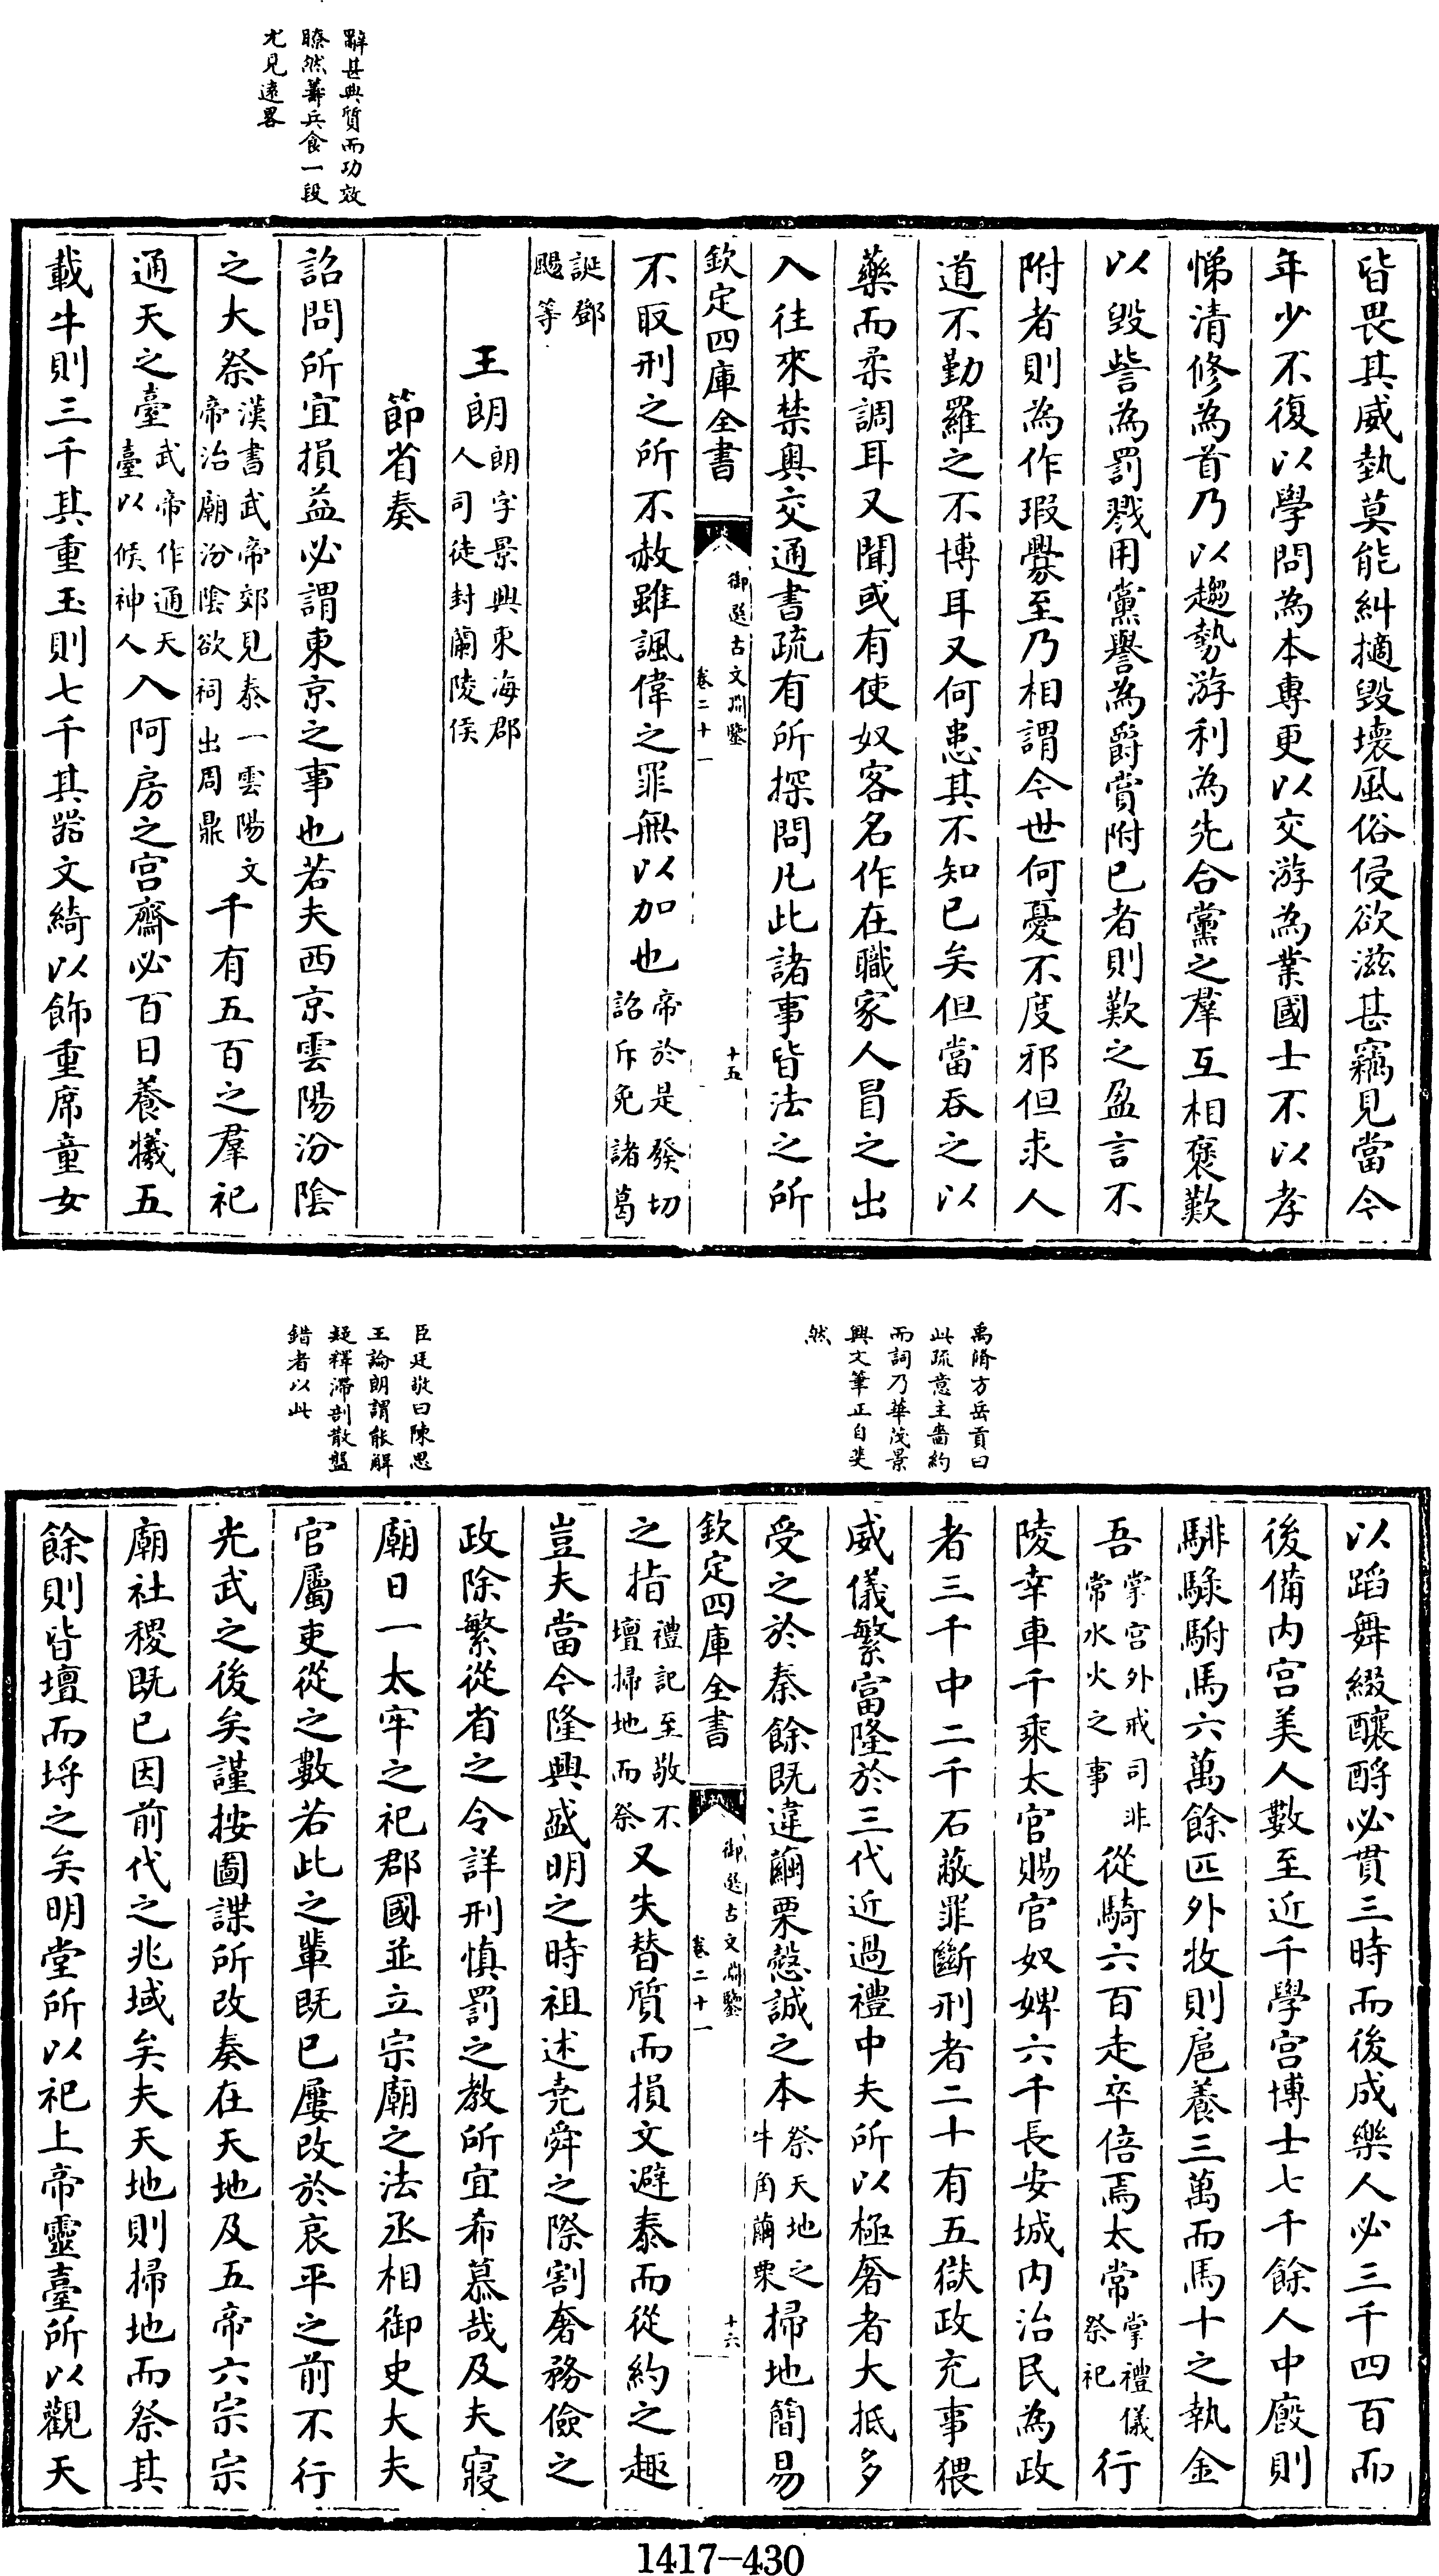 辭甚典質而功效
瞭然籌兵食一段
尤見遠畧
皆畏其威埶莫能糾擿毀壞風俗侵欲滋甚竊見當今
年少不復以學問為本專更以交游為業國士不以孝
悌清修為首乃以趨勢游利為先合黨之羣互相褒歎
以毀訾為罰戮用黨譽為爵賞附已者則歎之盈言不
附者則為作瑕釁至乃相謂今世何憂不度邪但求人
道不勤羅之不博耳又何患其不知已矣但當吞之以
藥而柔調耳又聞或有使奴客名作在職家人冒之出
入往來禁奥交通書疏有所探問凡此諸事皆法之所
欽定四庫全書
御選古文淵鑒
卷二十一
十五
不取刑之所不赦雖諷偉之罪無以加也帝於是發切詔斥免諸葛
誕鄧颺等
王朗朗字景興東海郡人司徒封蘭陵侯
節省奏
詔問所宜損益必謂東京之事也若夫西京雲陽汾陰
之大祭漢書武帝郊見泰一雲陽文帝治廟汾陰欲祠出周鼎千有五百之羣祀
通天之臺武帝作通天臺以候神人入阿房之宫齋必百日養犧五
載牛則三千其重玉則七千其器文綺以飾重席童女
禹脩方岳貢曰
此疏意主嗇約
而詞乃華茂景
興文筆正自斐
然
臣廷敬曰陳思
王論朗謂能解
疑釋滯剖散盤
錯者以此
以蹈舞綴釀酎必貫三時而後成樂人必三千四百而
後備内宫美人數至近千學宫博士七千餘人中廐則
騑騄駙馬六萬餘匹外牧則扈養三萬而馬十之執金
吾掌宫外戒司非常水火之事從騎六百走卒倍焉太常掌禮儀祭祀行
陵幸車千乘太官賜官奴婢六千長安城内治民為政
者三千中二千石蔽罪斷刑者二十有五獄政充事猥
威儀繁富隆於三代近過禮中夫所以極奢者大抵多
受之於秦餘既違繭栗慤誠之本祭天地之牛角繭栗掃地簡易
欽定四庫全書
御選古文淵鑒
卷二十一
十六
之指禮記至敬不壇掃地而祭又失替質而損文避泰而從約之趣
豈夫當今隆興盛明之時祖述堯舜之際割奢務儉之
政除繁從省之令詳刑慎罰之教所宜希慕哉及夫寢
廟日一太牢之祀郡國並立宗廟之法丞相御史大夫
官屬吏從之數若此之輩既已屢改於哀平之前不行
光武之後矣謹按圖諜所改奏在天地及五帝六宗宗
廟社稷既已因前代之兆域矣夫天地則掃地而祭其
餘則皆壇而埒之矣明堂所以祀上帝靈臺所以觀天
1417-430